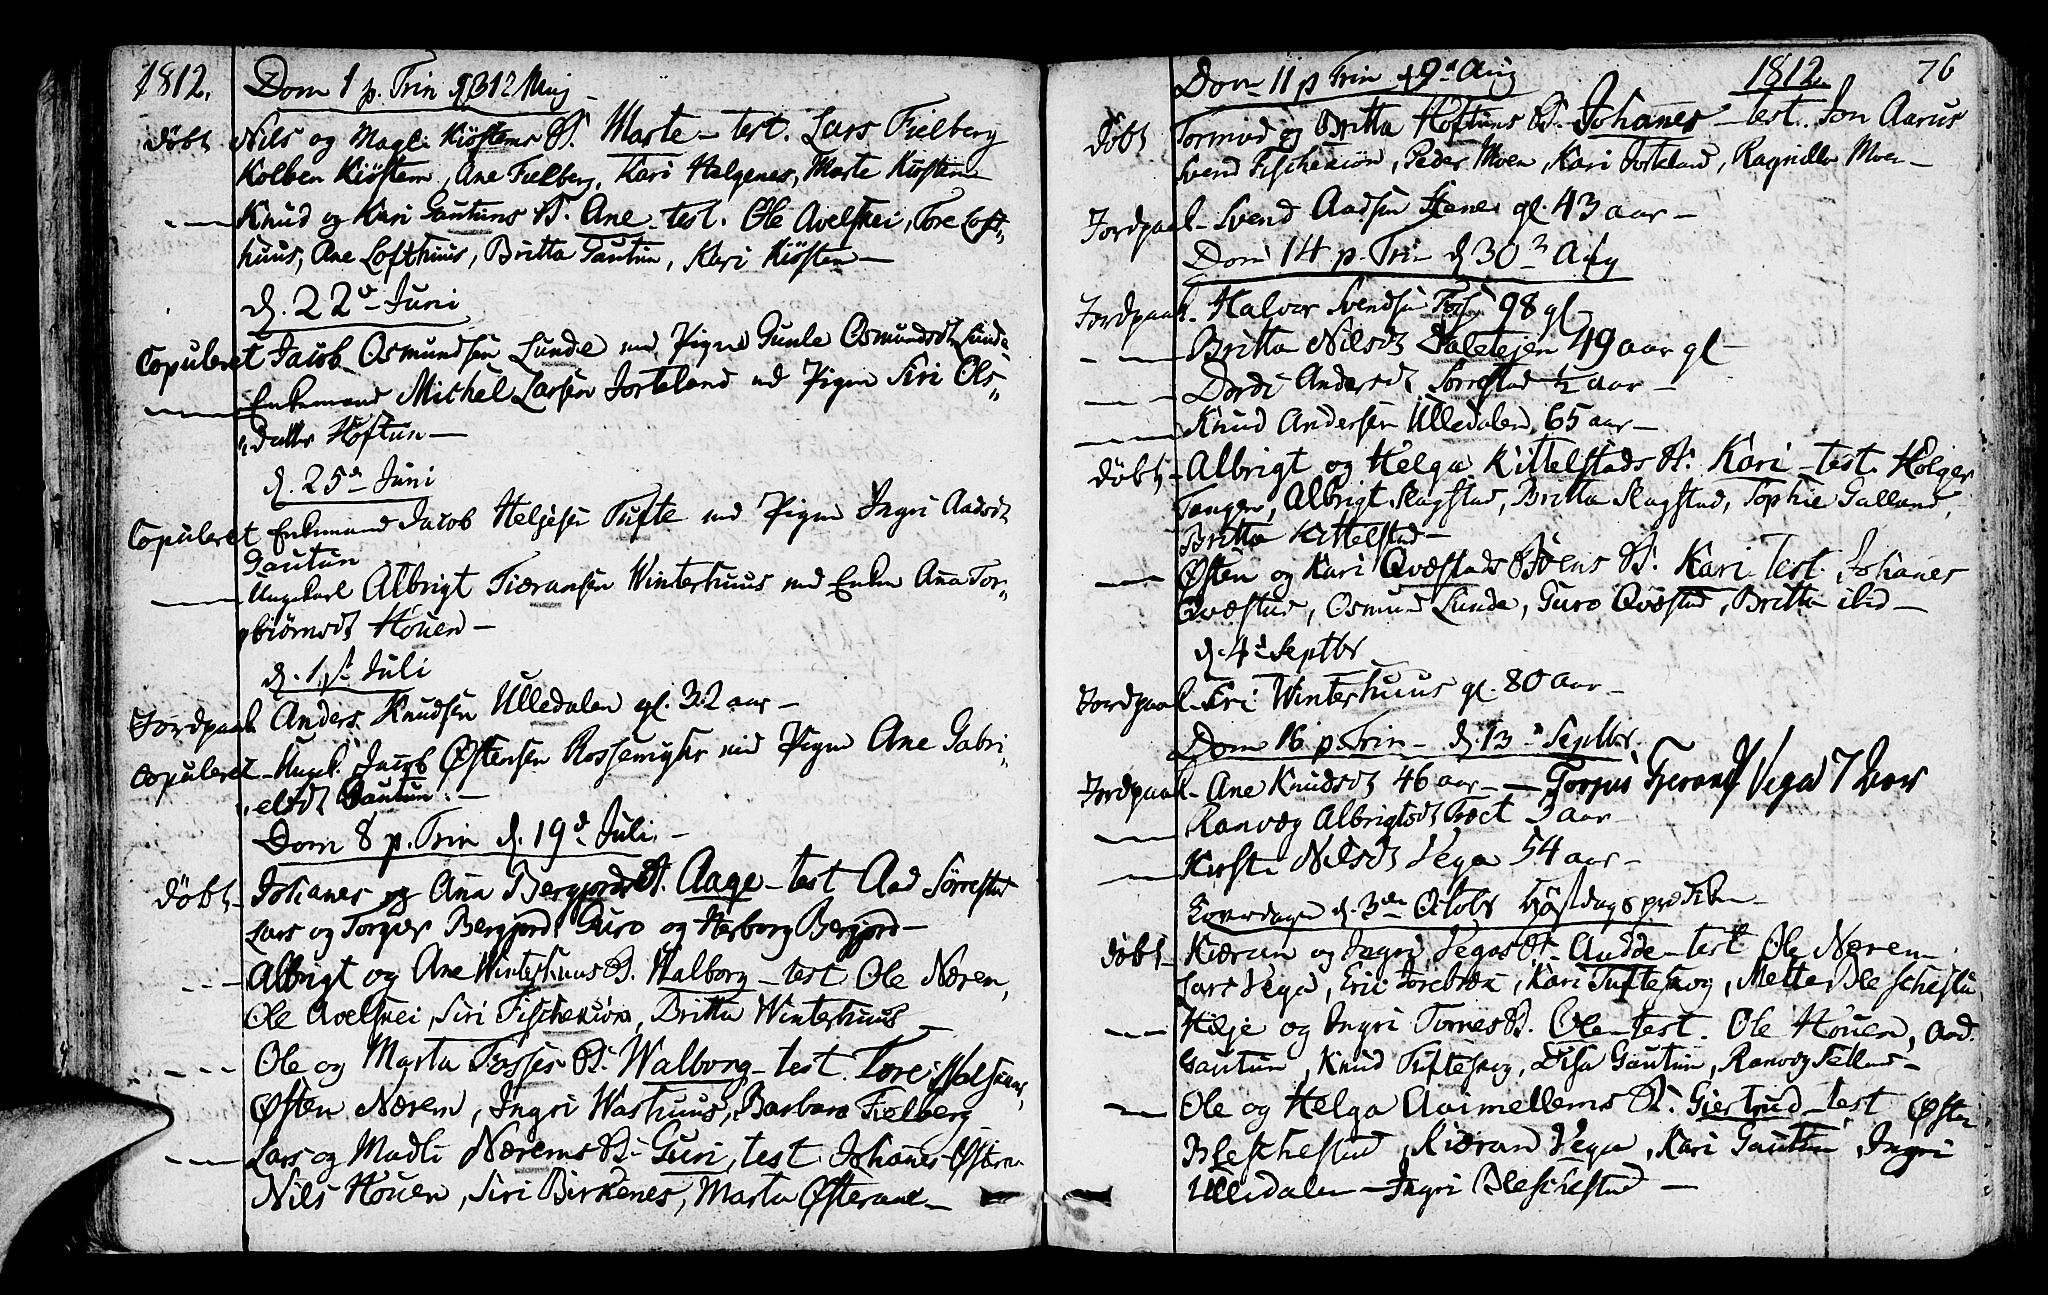 1812.
Dom 1 p. Trin d 31 Maj
døbt Nils og Magli Kiøstems B. Marte - test. Lars Fielberg
Kolben Kiøstem, Ane Fielberg, Kari Helgenes, Marte Kiøstem
Knud og Kari Gautuns B. Ane - test. Ole Avelsnei, Tore Loft„
huus, Ane Lofthuus, Britta Gautun, Kari Kiøstem -
d. 22 Juni
Copuleret Jacob Osmundsen Lunde med Pigen Gunle Osmundsdt Lunde
Enkemand Michel Larsen Jorteland med Pigen Siri Ols„
„datter Høftun -
d. 25 Juni
Copuleret Enkemand Jacob Heljesen Tufte med Pigen Ingri Aadsdt
Gautun
Ungekarl Albrigt Tiæransen Winterhuus med Enken Ana Tor„
„biørnsdt Høuen -
d. 1st Juli
Jordpaak. Anders Knudsen Ulledalen gl. 32 aar -
Copuleret - Ungk. Jacob Østensen med Pigen Ane Gabri„
„elsdt Gautun. -
Dom 8 p. Trin d. 19 Juli. -
døbt - Johanes og Ana Bergjords B. Aage - test Aad Sørrestad
Lars og Torger Bergjord, Guro og Herborg Bergjord -
Albrigt og Ane Winterhuus B. Walborg - test Ole Nærem,
Ole Avelsnei, Siri Fischekiøn, Britta Winterhuus
Ole og Marta Fosses B. Walborg - test. Tore
Østen Nærem, Ingri Washuus, Barbara Fielberg
Lars og Madli Nærems B. Guri, test Johanes
Nils Høuen, Siri Birkenes, Marta
Dom 11 p Trin d 9 Aug
1812. 76
døbt Tormod og Britta Høftuns B. Johanes - test. Jon Aarus
Svend Fischekiøn, Peder Moen, Kari Jorteland, Ragnilla Moen -
Jordpaak - Svend Aadsen gl. 43 aar -
Dom 14 p. Trin d 30 Aug
Jordpaak. Halvor Svendsen Foss 98 gl
Britta Nilsdt 49 aar gl -
Dordi Andersdt Sørrestad 1/2 aar -
Knud Andersen Ulledalen, 65 aar -
døbt - Albrigt og Helga Kittelstads B. Kari - test. Holger
Tanger, Albrigt Skogstad, Britta Skogstad, Sophie Galland,
Britta Kittelstad -
Østen og Kari Qvæstads B. Kari test. Johanes
Qvæstad, Osmund Lunde, Guro Qvæstad, Britta ibid -
d. 4 Septbr
Jordpaak - Siri Winterhuus gl. 80 aar -
Dom 16 p. Trin - d. 13 Septbr.
Jordpaak - Ane Knudsdt 46 aar - Vega 7 Uger
Ranvæg Albrigtsdt 3 aar
Kirsti Nilsdt Vega 54 aar -
d. 3 Octobr Høstdags prædiken -
døbt - Kiæran og Ingri Vegas B. Aadde - test Ole Nærem
Lars Vega, Eric Torebræk, Kari Tufteskog, Mette Bleschestad
Hilje og Ingri Tornes B. Ole - test. Ole Høuen, Aad
Gautun, Knud Tufteskog, Lisa Gautun, Ranvog
Ole og Helga Aaimellems B. Giertrud - test Østen
Bleschestad, Kiæran Vega, Kari Gautun, Ingri
Ulledalen - Ingri Bleschestad -